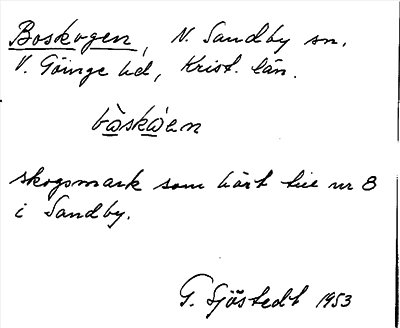 Boskogen, N. Sandby sn.
V. Göinge hd, Krist. län.
bo̱̊̀sko̱̊́en
skogsmark som hört till nr 8
i Sandby.
G. Sjöstedt 1953